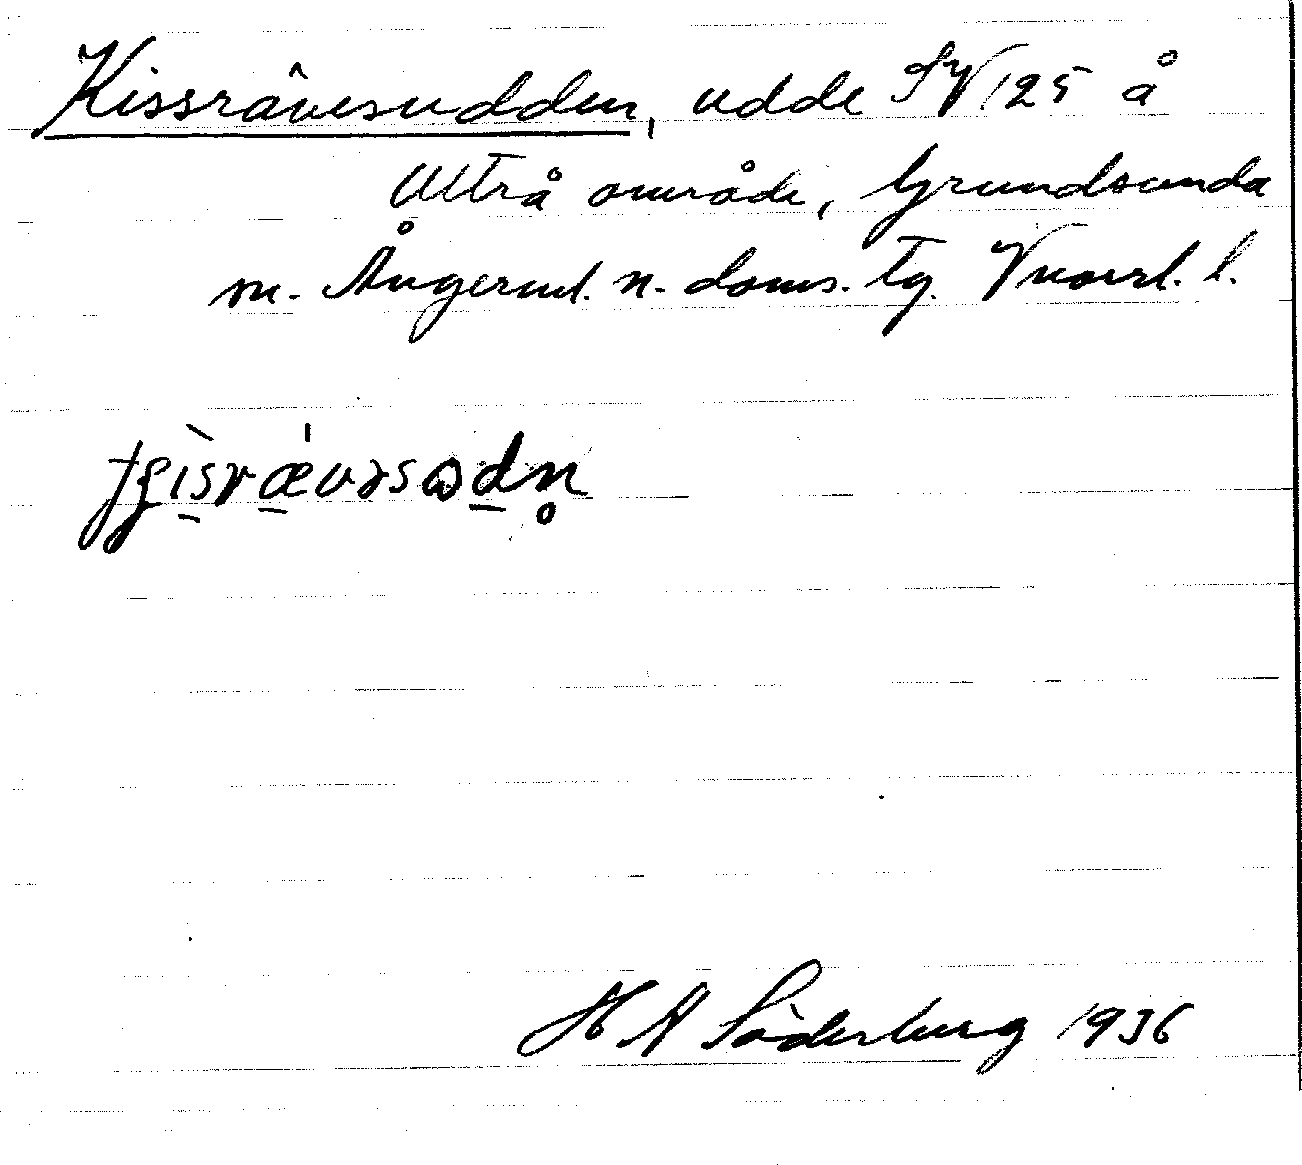 Kissrävesudden, udde SV 125 å
Ultrå område, Grundsunda
m. Ångerml. n. doms. tg. Vnorrl. l.
H A Söderberg 1936